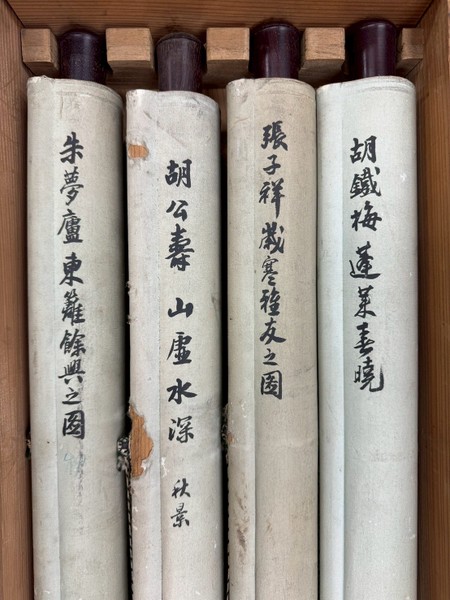 朱夢廬東籬餘興之圖
胡公壽山虛水深
秋景
張子祥歲寒雅友之圖
胡鐵梅蓬萊春曉